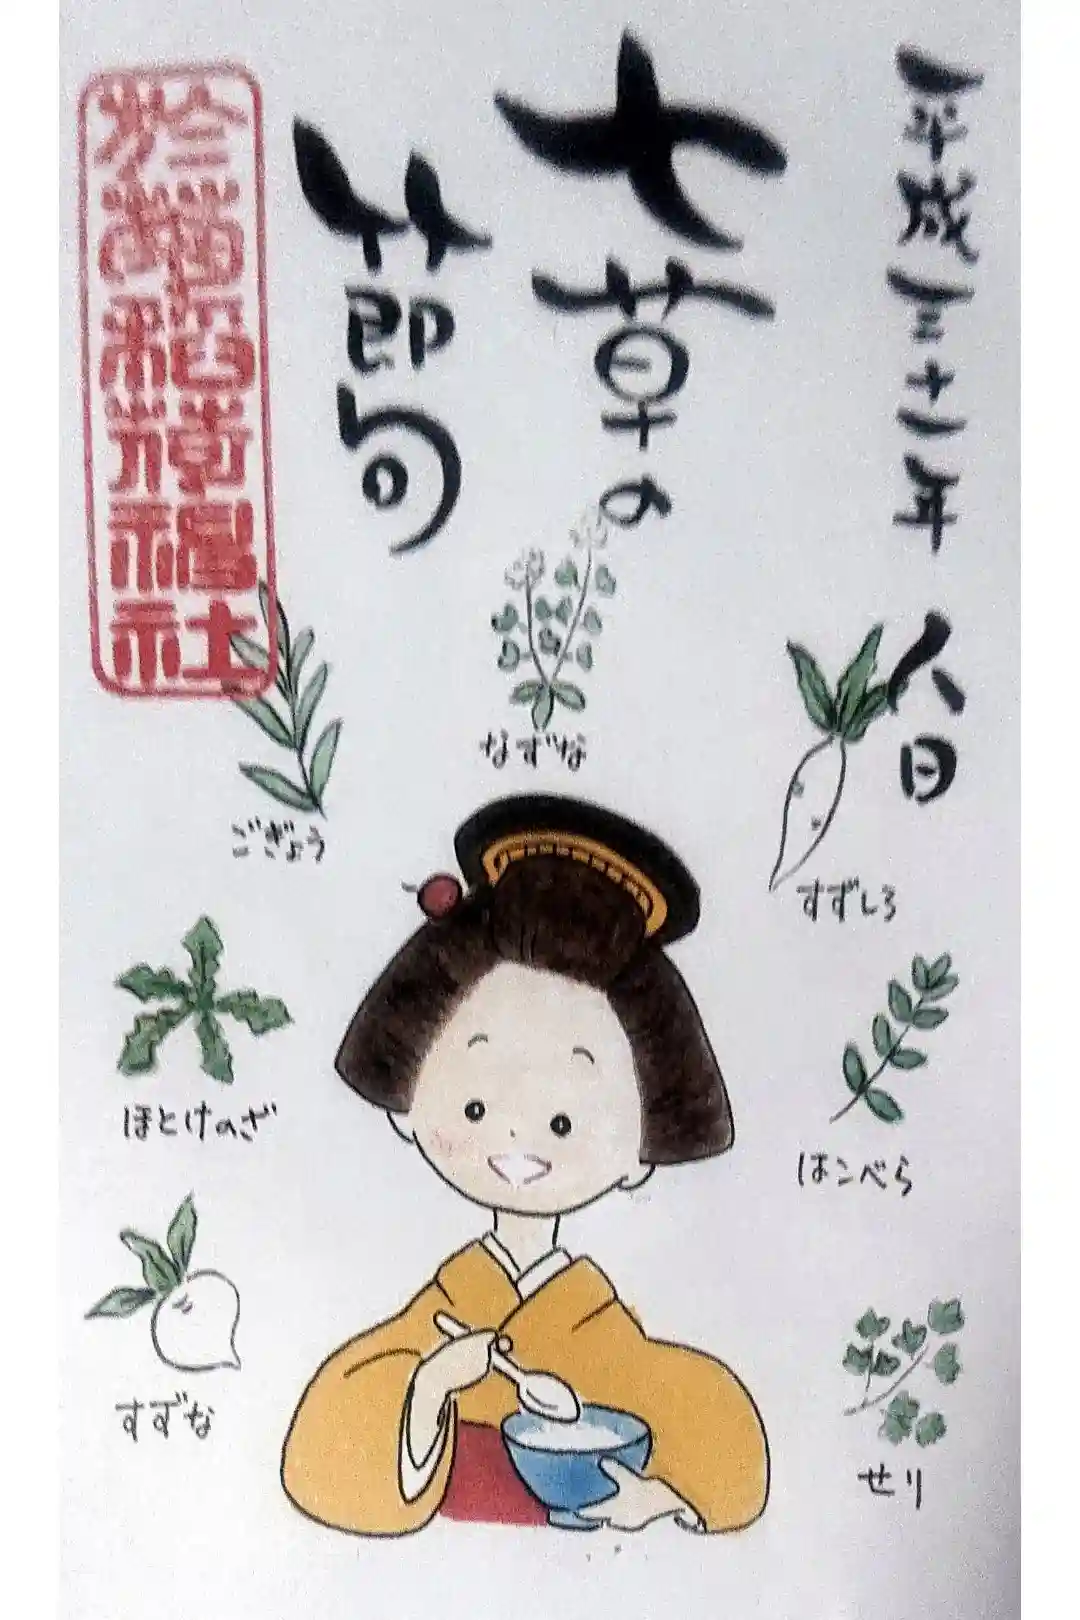 平成三十一年 人日
七草の
節句
於菊稲荷神社
なずな
ごぎょう
すずしろ
ほとけのざ
はこべら
すずな
せり